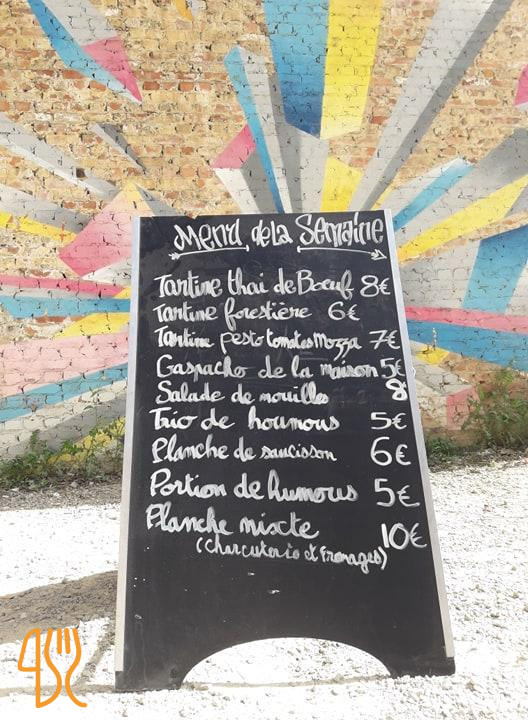 Menu de la Semaine
Tartine thai de Bœuf 8€
Tartine forestière 6€
Tartine pesto tomates Mozza 7€
Gaspacho de la maison 5€
Salade de nouilles 8€
Trio de houmous 5€
Planche de saucisson 6€
Portion de humous 5€
Planche mixte 10€
(Charcuterie et Fromages)